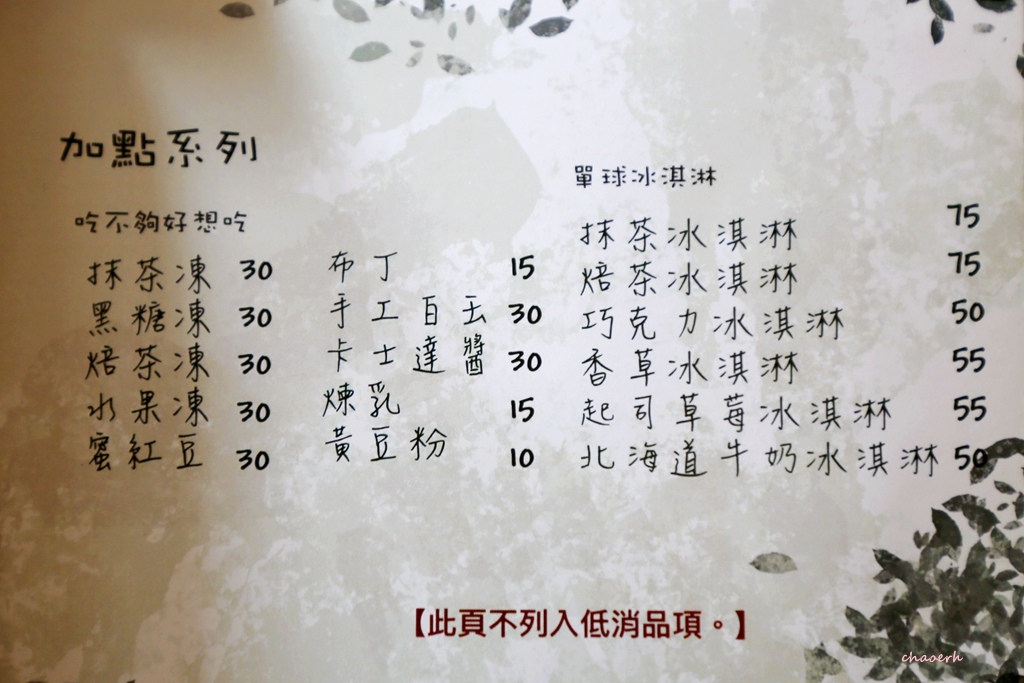 加點系列
吃不夠好想吃
抹茶凍 30
黑糖凍 30
焙茶凍 30
水果凍 30
蜜紅豆 30
布丁 15
手工白玉 30
卡士達醬 30
煉乳 15
黃豆粉 10
單球冰淇淋
抹茶冰淇淋 75
焙茶冰淇淋 75
巧克力冰淇淋 50
香草冰淇淋 55
起司草莓冰淇淋 55
北海道牛奶冰淇淋 50
【此頁不列入低消品項。】
chaoerh